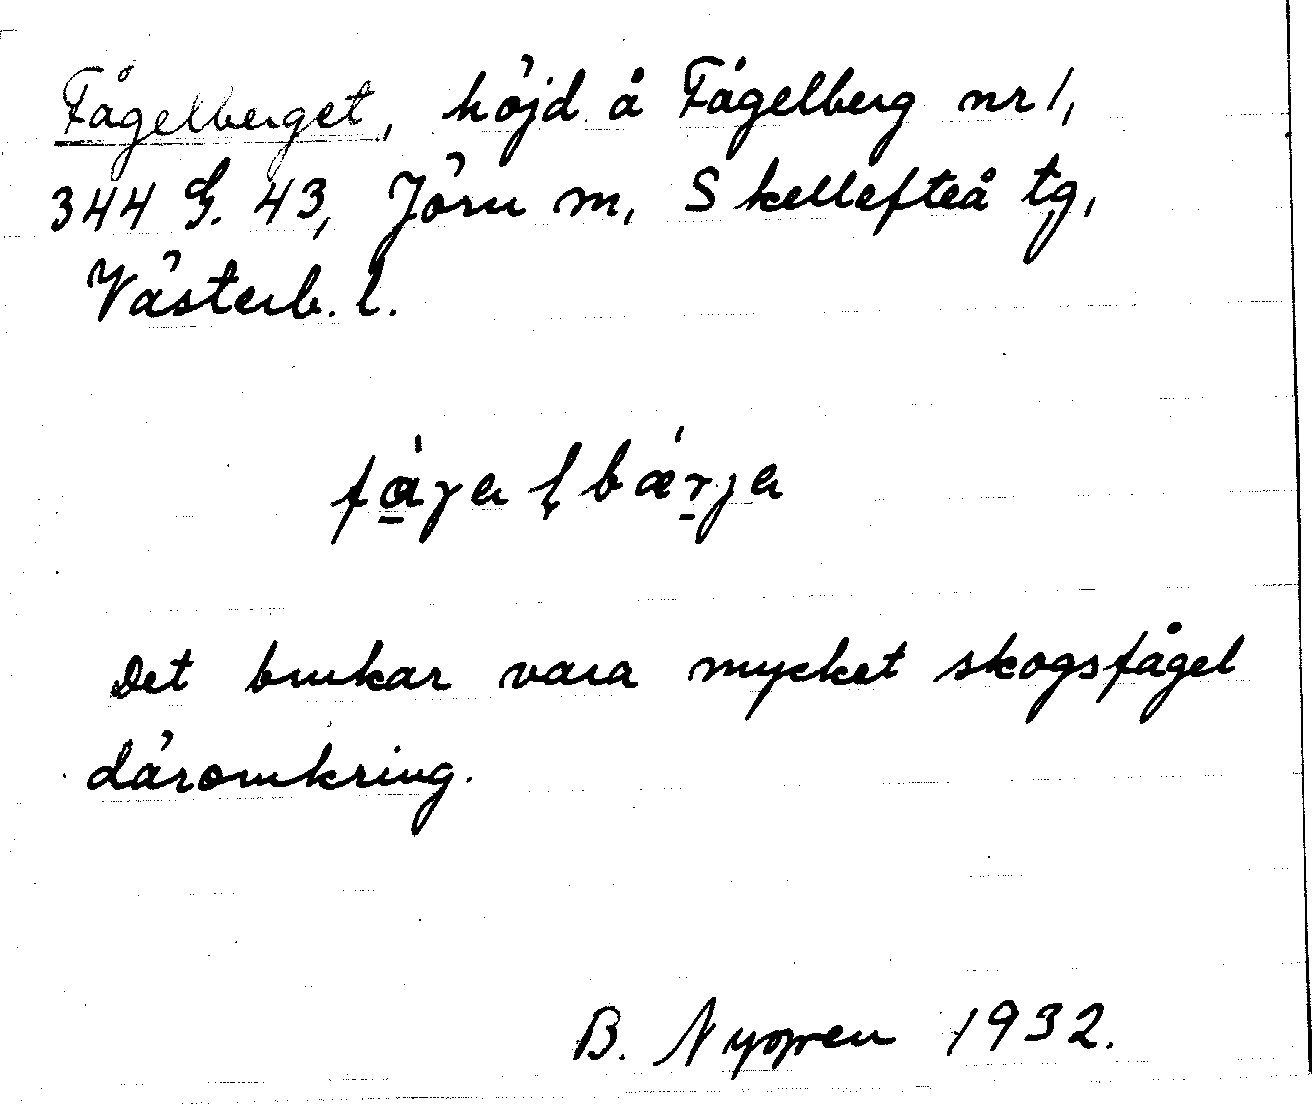 Fågelberget, höjd å Fågelberg nr 1,
344 G. 43, Jörn m, Skellefteå tg,
Västerb. l.
Det brukar vara mycket skogsfågel
däromkring.
B. Nygren 1932.